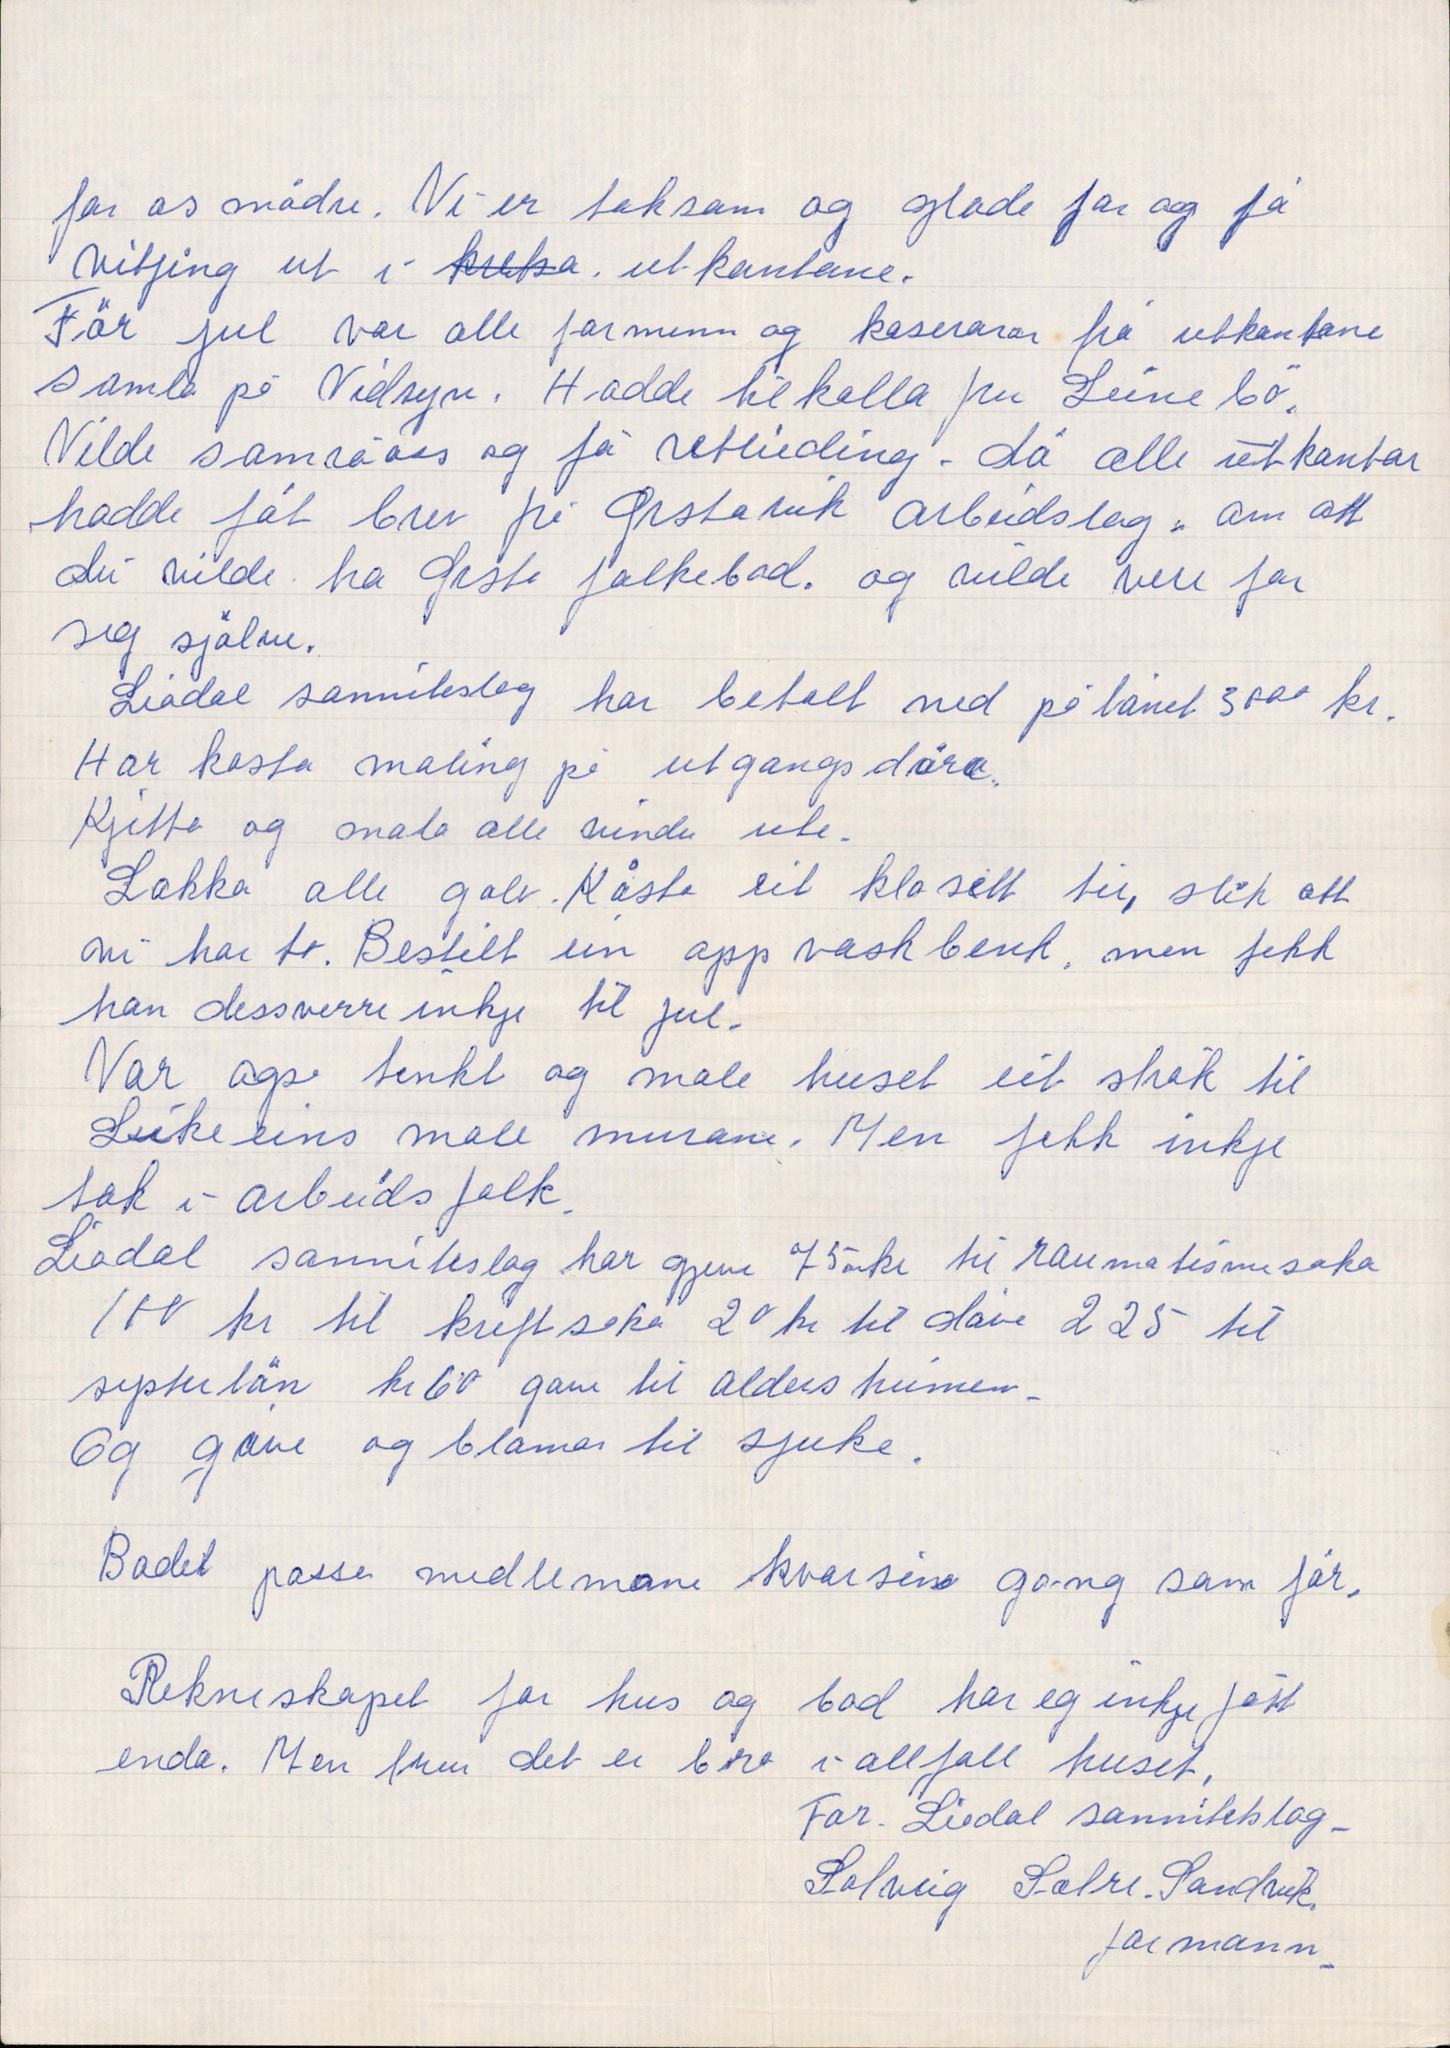 for os mödre. Vi er taksam og glade for og få
vitjing ut i kretsa. utkantane.
För jul var alle formenn og kaserarar frå utkantane
samla på Vidsyn. Hadde tilkalla fru Leinebö.
Vilde samrå oss og få retleiding. då alle utkantar
hadde fåt brev frå Ørstavik arbeidslag. om att
dei vilde ha Ørsta folkebad. og vilde vere for
seg sjölve.
Liadal sanniteslag har betalt ned på lånet 3000 kr.
Har kosta maling på utgangsdöra.
Kjitta og mala alle vindu ute.
Lakka alle golv. Kåsta eit klosett til, slik att
vi har to. Bestilt ein oppvaskbenk, men fekk
han dessverre inkje til jul.
Var ogso tenkt og male huset eit strök til
Leikeeins male murane. Men fekk inkje
tak i arbeidsfolk.
Liadal sanniteslag har gjeve 75 kr til raumatismesaka
100 kr til kreftsaka 20 kr til dåve 225 til
septerlån kr 60 gave til aldersheimen.
Og gåve og blomar til sjuke.
Badet passe medlemane kvar sin gang som för.
Rekneskapet for hus og bad har eg inkje fått
enda. Men trur det er bra i allfall huset,
For. Liadal sannitetslag.
Solveig Sætre-Sandvik.
formann.